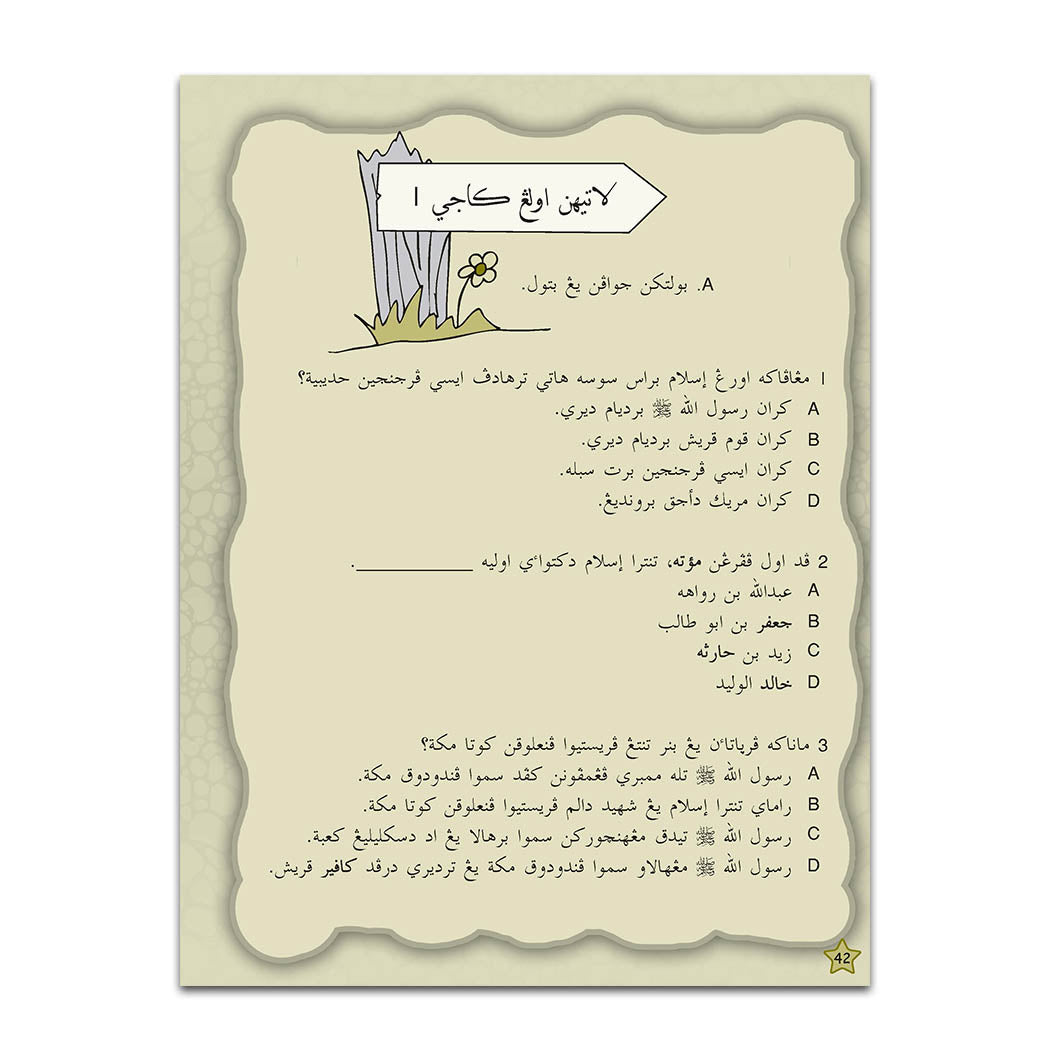 لاتيهن اولڠ كاجي 1
A. بولتكن جواڤن يڠ بتول.
1 مڠاڤاكه اورڠ إسلام براس سوسه هاتي ترهادڤ ايسي ڤرجنجين حديبية؟
A كران رسول الله ﷺ برديام ديري.
B كران قوم قريش برديام ديري.
C كران ايسي ڤرجنجين برت سبله.
D كران مريك دأجق برونديڠ.
2 ڤد اول ڤڤرڠن مؤته، تنترا إسلام دكتواءي اوليه __________.
A عبدالله بن رواهه
B جعفر بن ابو طالب
C زيد بن حارثه
D خالد الوليد
3 ماناكه ڤرڽاتاءن يڠ بنر تنتڠ ڤريستيوا ڤنعلوقن كوتا مكة؟
A رسول الله ﷺ تله ممبري ڤڠمڤونن كڤد سموا ڤندودوق مكة.
B راماي تنترا إسلام يڠ شهيد دالم ڤريستيوا ڤنعلوقن كوتا مكة.
C رسول الله ﷺ تيدق مڠهنچوركن سموا برهالا يڠ اد دسكليليڠ كعبة.
D رسول الله ﷺ مڠهالاو سموا ڤندودوق مكة يڠ ترديري درڤد كافير قريش.
42